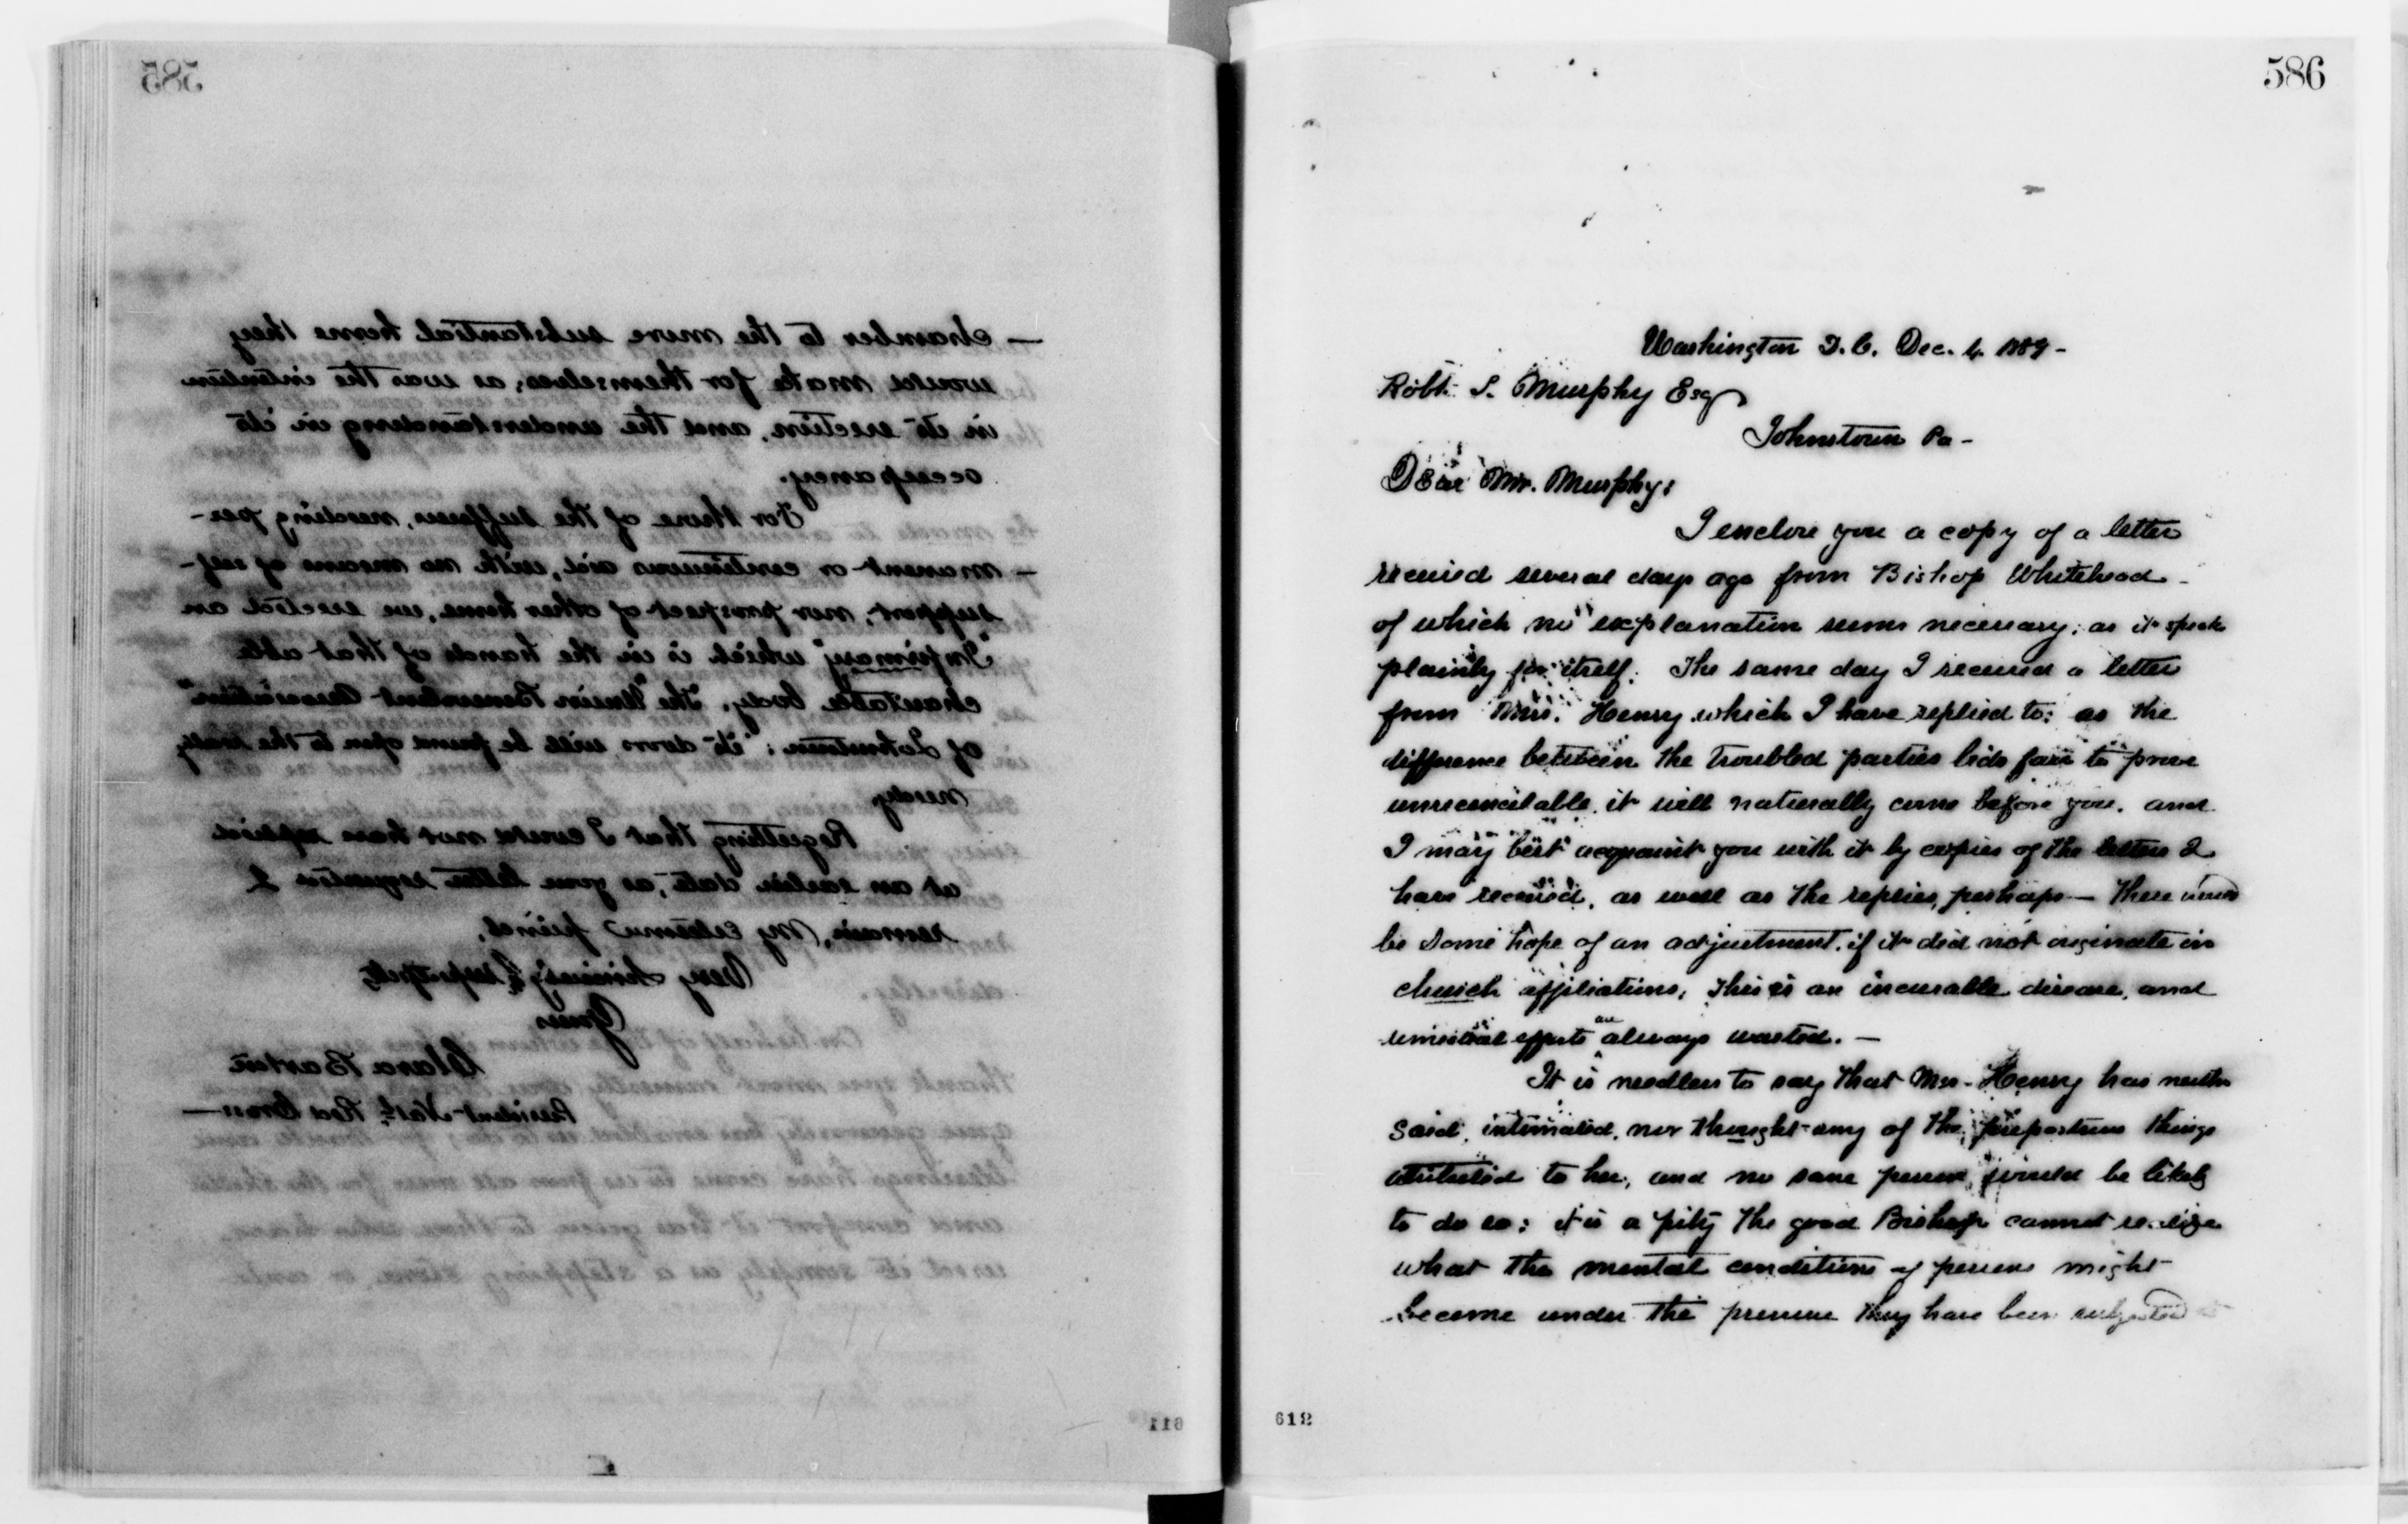 585
— chamber to the more substantial home they
would make for themselves, as was the intention
in its erection, and the understanding in its
occupancy.
For those of the sufferers, needing per-
- manent or continuous aid, with no means of self-
support, nor prospect of other home, we erected an
"Infirmary" which is in the hands of that able
charitable body, "The Union Benevolent Association"
of Johnstown; its doors will be found open to the
needy
Regretting that I could not have replied
at an earlier date, as your letter requested I
remain, (my esteemed friend,
Very Sincerely & respectfully
Yours
Clara Barton
President Natl. Red Cross —
611
586
Washington D.C. Dec. 4. 1889 -
Robt. S. Murphy Esq
Johnstown Pa -
Dear Mr. Murphy:
I enclose you a copy of a letter
received several days ago from Bishop Whitehead -
of which no explanation seems necessary; as it speaks
plainly for itself. The same day I received a letter
from Mrs. Henry which I have replied to: as the
difference between the troubled parties bids fair to prove
unreconcilable, it will naturally come before you, and
I may best acquaint you with it by copies of the letters I
have received, as well as the replies, perhaps — There would
be some hope of an adjustment, if it did not originate in
church affiliations, This is an incurable disease, and
remedial efforts are always wasted. —
It is needless to say that Mrs. Henry has neither
said, intimated, nor thought any of the preposterous things
attributed to her, and no sane person would be likely
to do so: it is a pity the good Bishop cannot realize
what the mental conditions of persons might
become under the pressure they have been subjected
612